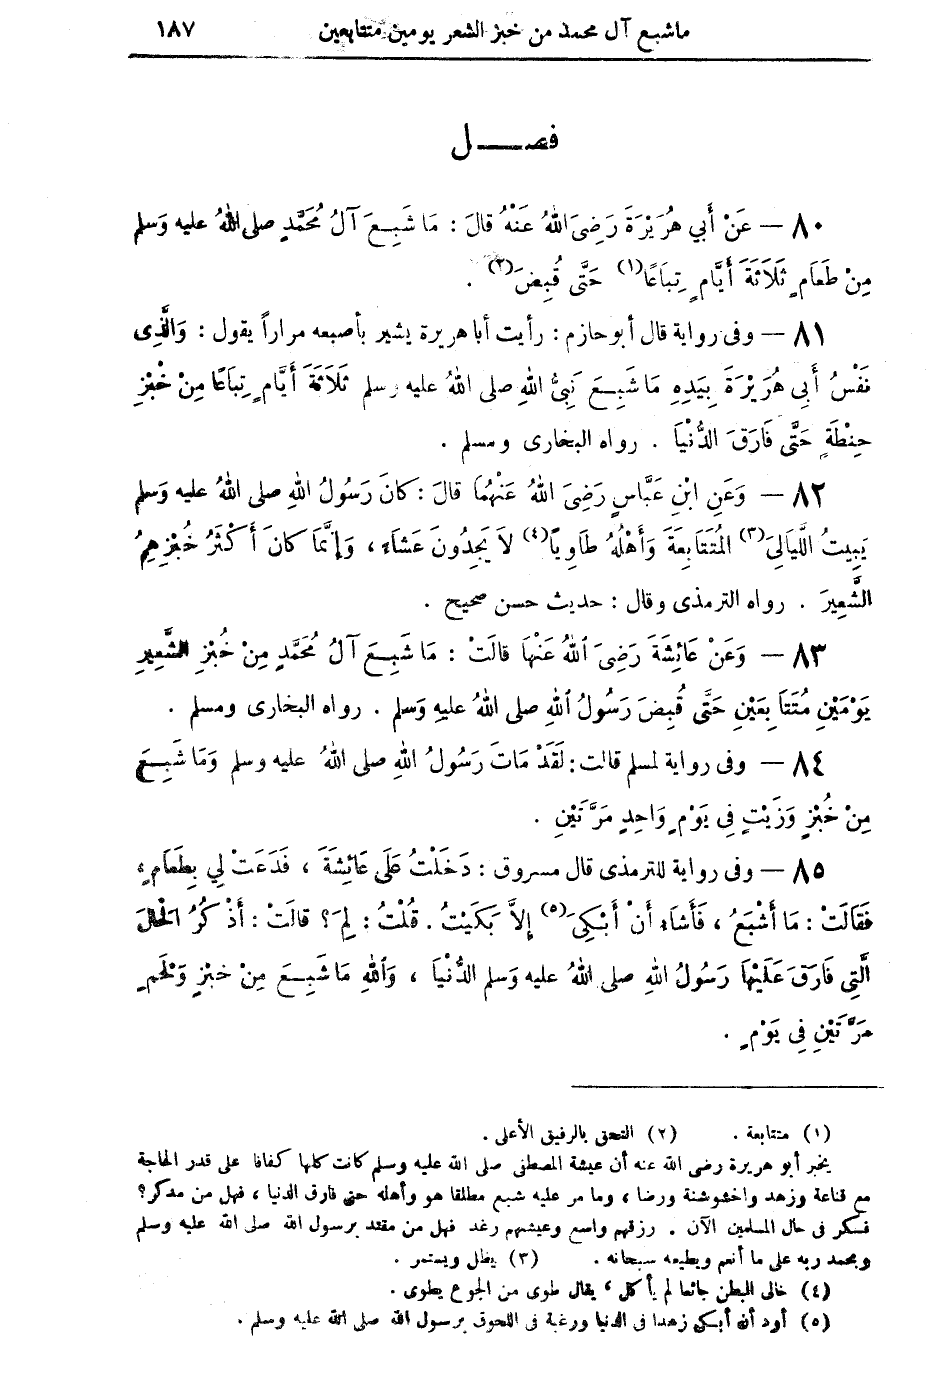 ماشبع آل محمد من خبز الشعر يومين متتابعين ١٨٧
فصـــل
٨٠ — عَنْ أَبي هُرَيْرَةَ رَضِىَ اللهُ عَنْهُ قالَ : مَا شَبِعَ آلُ مُحَمَّدٍ صلى اللهُ عليه وَسلم
مِنْ طَعَامٍ ثَلَاثَةَ أَيَّامٍ تِبَاعًا(١) حَتَّى قُبِضَ(٢) .
٨١ — وفى رواية قال أبو حازم : رأيت أبا هريرة يشير بأصبعه مراراً يقول : وَالَّذِى
نَفْسُ أَبِى هُرَيْرَةَ بِيَدِهِ مَا شَبِعَ نَبِىُّ اللهِ صلى اللهُ عليه وسلم ثَلَاثَةَ أَيَّامٍ تِبَاعًا مِنْ خُبْزِ
حِنْطَةٍ حَتَّى فَارَقَ الدُّنْيَا . رواه البخارى ومسلم .
٨٢ — وَعَنِ ابْنِ عَبَّاسٍ رَضِىَ اللهُ عَنْهُمَا قالَ : كانَ رَسُولُ اللهِ صلى اللهُ عليه وَسلم
يَبِيتُ اللَّيَالِىَ(٣) الْمُتَتَابِعَةَ وَأَهْلُهُ طَاوِيًا(٤) لاَ يَجِدُونَ عَشَاءً ، وَإِنَّمَا كانَ أَكْثَرُ خُبْزِهِمُ
الشَّعِيرَ . رواه الترمذى وقال : حديث حسن صحيح .
٨٣ — وَعَنْ عَائِشَةَ رَضِىَ اللهُ عَنْهَا قالَتْ : مَا شَبِعَ آلُ مُحَمَّدٍ مِنْ خُبْزِ الشَّعِيرِ
يَوْمَيْنِ مُتَتَابِعَيْنِ حَتَّى قُبِضَ رَسُولُ اللهِ صلى اللهُ عليهِ وَسلم . رواه البخارى ومسلم .
٨٤ — وفى رواية لمسلم قالت : لَقَدْ مَاتَ رَسُولُ اللهِ صلى اللهُ عليه وسلم وَمَا شَبِعَ
مِنْ خُبْزٍ وَزَيْتٍ فِى يَوْمٍ وَاحِدٍ مَرَّتَيْنِ .
٨٥ — وفى رواية للترمذى قال مسروق : دَخَلْتُ عَلَى عَائِشَةَ ، فَدَعَتْ لِي بِطَعَامٍ ،
فَقَالَتْ : مَا أَشْبَعُ ، فَأَشَاءُ أَنْ أَبْكِىَ(٥) إِلاَّ بَكَيْتُ . قُلْتُ : لِمَ ؟ قالَتْ : أَذْكُرُ الْحَالَ
الَّتِى فَارَقَ عَلَيْهَا رَسُولُ اللهِ صلى اللهُ عليه وَسلم الدُّنْيَا ، وَاللهِ مَا شَبِعَ مِنْ خُبْزٍ وَلَحْمٍ
مَرَّتَيْنِ فِى يَوْمٍ .
(١) متتابعة . (٢) التحق بالرفيق الأعلى .
يخبر أبو هريرة رضى الله عنه أن عيشة المصطفى صلى الله عليه وسلم كانت كلها كفافا على قدر الحاجة
مع قناعة وزهد واخشوشنة ورضا ، وما مر عليه شبع مطلقا هو وأهله حتى فارق الدنيا ، فهل من مدكر؟
فسكر فى حال المسلمين الآن . رزقهم واسع وعيشهم رغد فهل من مقتد برسول الله صلى الله عليه وسلم
ويحمد ربه على ما أنعم ويطيعه سبحانه . (٣) يظل ويستمر .
(٤) خالى البطن جائعا لم يأكل ، يقال طوى من الجوع يطوى .
(٥) أود أن أبكى زهدا فى الدنيا ورغبة فى اللحوق برسول الله صلى الله عليه وسلم .